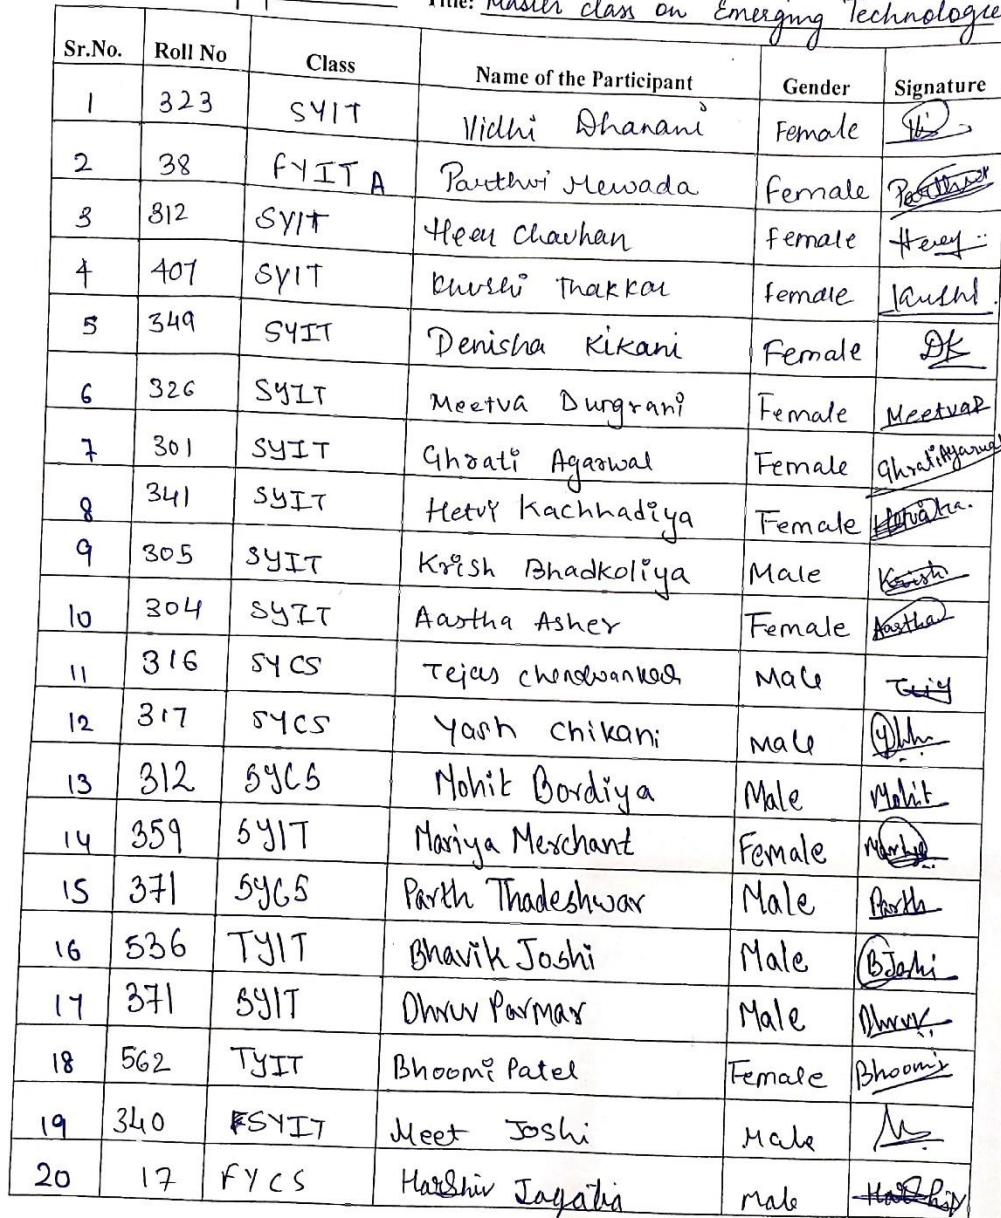 Title: Master class on Emerging Technologie
Sr.No. Roll No Class Name of the Participant Gender Signature
1 323 SYIT Vidhi Dhanani Female
2 38 FYIT A Parthvi Mewada Female Parthvi
3 312 SYIT Heer Chavhan Female
4 407 SYIT Khushi Thakkar Female Kushi
5 349 SYIT Denisha Kikani Female DK
6 326 SYIT Meetva Durgrani Female Meetva
7 301 SYIT Ghrati Agarwal Female Ghrati Agarwal
8 341 SYIT Hetvi Kachhadiya Female
9 305 SYIT Krish Bhadkoliya Male Krish
10 304 SYIT Aastha Asher Female Aastha
11 316 SYCS Tejas Male
12 317 SYCS Yash Chikani Male
13 312 SYCS Mohit Bordiya Male Mohit
14 359 SYIT Mariya Merchant Female
15 371 SYCS Parth Thadeshwar Male Parth
16 536 TYIT Bhavik Joshi Male BJoshi
17 371 SYIT Dhruv Parmar Male Dhruv
18 562 TYIT Bhoomi Patel Female Bhoomi
19 340 SYIT Meet Joshi Male
20 17 FYCS Harshiv Male